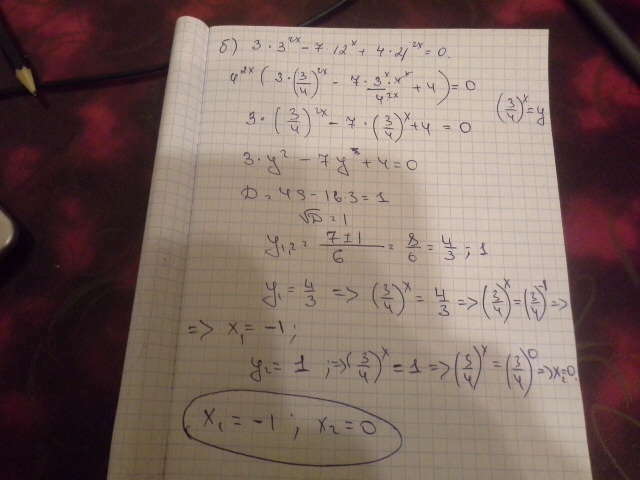 б) 3·3^2x − 7·12^x + 4·4^2x = 0.
4^2x (3·(3/4)^2x − 7·3^x·4^x/4^2x + 4) = 0
(3/4)^x = y
3·(3/4)^2x − 7·(3/4)^x + 4 = 0
3·y² − 7y + 4 = 0
D = 49 − 16·3 = 1
√D = 1
y₁,₂ = 7±1/6 = 8/6 = 4/3 ; 1
y₁ = 4/3 => (3/4)^x = 4/3 => (3/4)^x = (3/4)^-1 =>
=> x₁ = −1 ;
y₂ = 1 ; => (3/4)^x = 1 => (3/4)^x = (3/4)^0 => x₂=0.
x₁ = −1 ; x₂ = 0